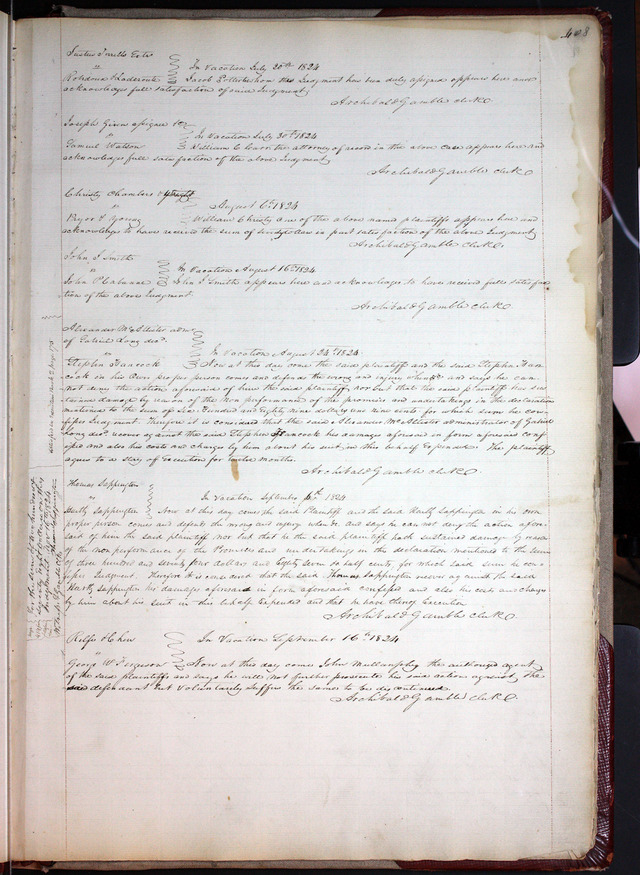 408
Justus Smiths Exts
" In Vacation July 20th 1824
Jacob Pettit whom this Judgment has been duly assigned appears here and
acknowledges full satisfaction of said Judgment
Archibald Gamble clerk
Joseph Given assignee &c
" In Vacation July 30th 1824
Samuel Watson William C Carr the attorney of record in the above case appears here and
acknowledges full satisfaction of the above Judgment
Archibald Gamble clerk
Christy Chambers &
" August 6th 1824
William Christy one of the above named plaintiffs appears here and
acknowledges to have received the sum of in part satisfaction of the above Judgment
Archibald Gamble clerk
John J Smith
" In Vacation August 16th 1824
John P Cabanne John J Smith appears here and acknowledges to have received full satisfac
tion of the above Judgment
Archibald Gamble clerk
Alexander McAllister admr
of Gabriel Long decd.
" In Vacation August 24th 1824
Stephen Hancock Now at this day come the said plaintiff and the said Stephen Han
cock in his own proper person comes and defends the wrong and injury when &c and says he can
not deny the action aforesaid of him the said plaintiff, nor but that the said plaintiff has sus
tained damage by reason of the non performance of the promises and undertakings in the declaration
mentioned to the sum of Six hundred and Eighty nine dollars and nine cents for which sum he con
fesses Judgment. Therefore it is considered that the said Alexander McAllister administrator of Gabriel
Long decd. recover against the said Stephen Hancock his damages aforesaid in form aforesaid conf
essed and also his costs and charges by him about his suit in this behalf Expended. The plaintiff
agrees to a stay of Execution for twelve months.
Archibald Gamble clerk
Thomas Sappington
" In Vacation September 4th 1824
Hartly Sappington Now at this day comes the said Plaintiff and the said Hartly Sappington in his own
proper person comes and defends the wrong and injury when &c and says he can not deny the action afore
said of him the said plaintiff nor but that he the said plaintiff hath sustained damage by reason
of the non performance of the Promises and undertakings in the declaration mentioned to the sum
of three hundred and seventy four dollars and Eighty Seven & half cents, for which said sum he con
fesses Judgment. Therefore it is considered that the said Thomas Sappington recover against the said
Hartly Sappington his damage aforesaid in form aforesaid confessed and also his costs and charges
by him about his suit in this behalf Expended and that he have thereof Execution
Archibald Gamble clerk
Relfe & Chew In Vacation September 16th 1824
"
George W Ferguson Now at this day comes John Mullanphy the authorized agent
of the said plaintiffs and says he will not further prosecute his said action against the
said defendant but voluntarily suffers the same to be discontinued
Archibald Gamble clerk